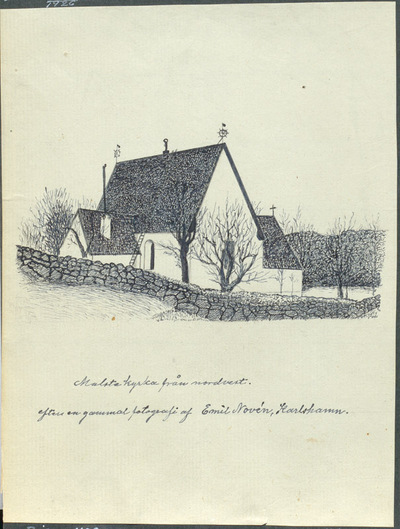 Malsta kyrka från nordvest.
efter en gammal fotografi af Emil Novén, Karlshamn.